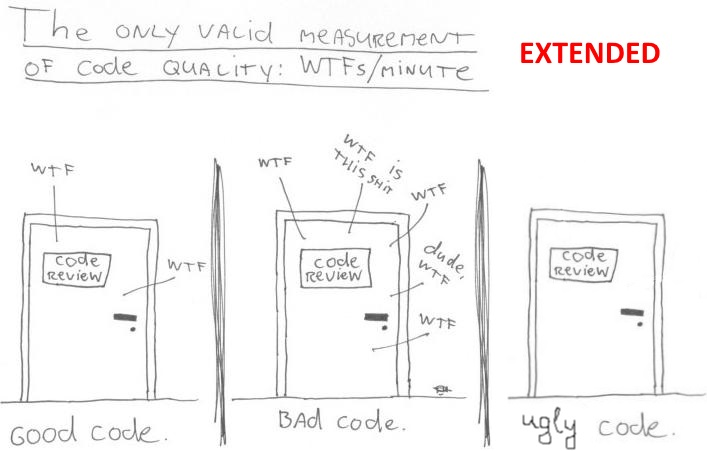 The ONLY VALID MEASUREMENT
OF CODE QUALITY: WTFs/MINUTE
EXTENDED
WTF
WTF
CODE
REVIEW
GOOD CODE.
WTF
WTF is
THIS SHIT
WTF
dude,
WTF
WTF
CODE
REVIEW
BAd code.
CODE
REVIEW
ugly code.